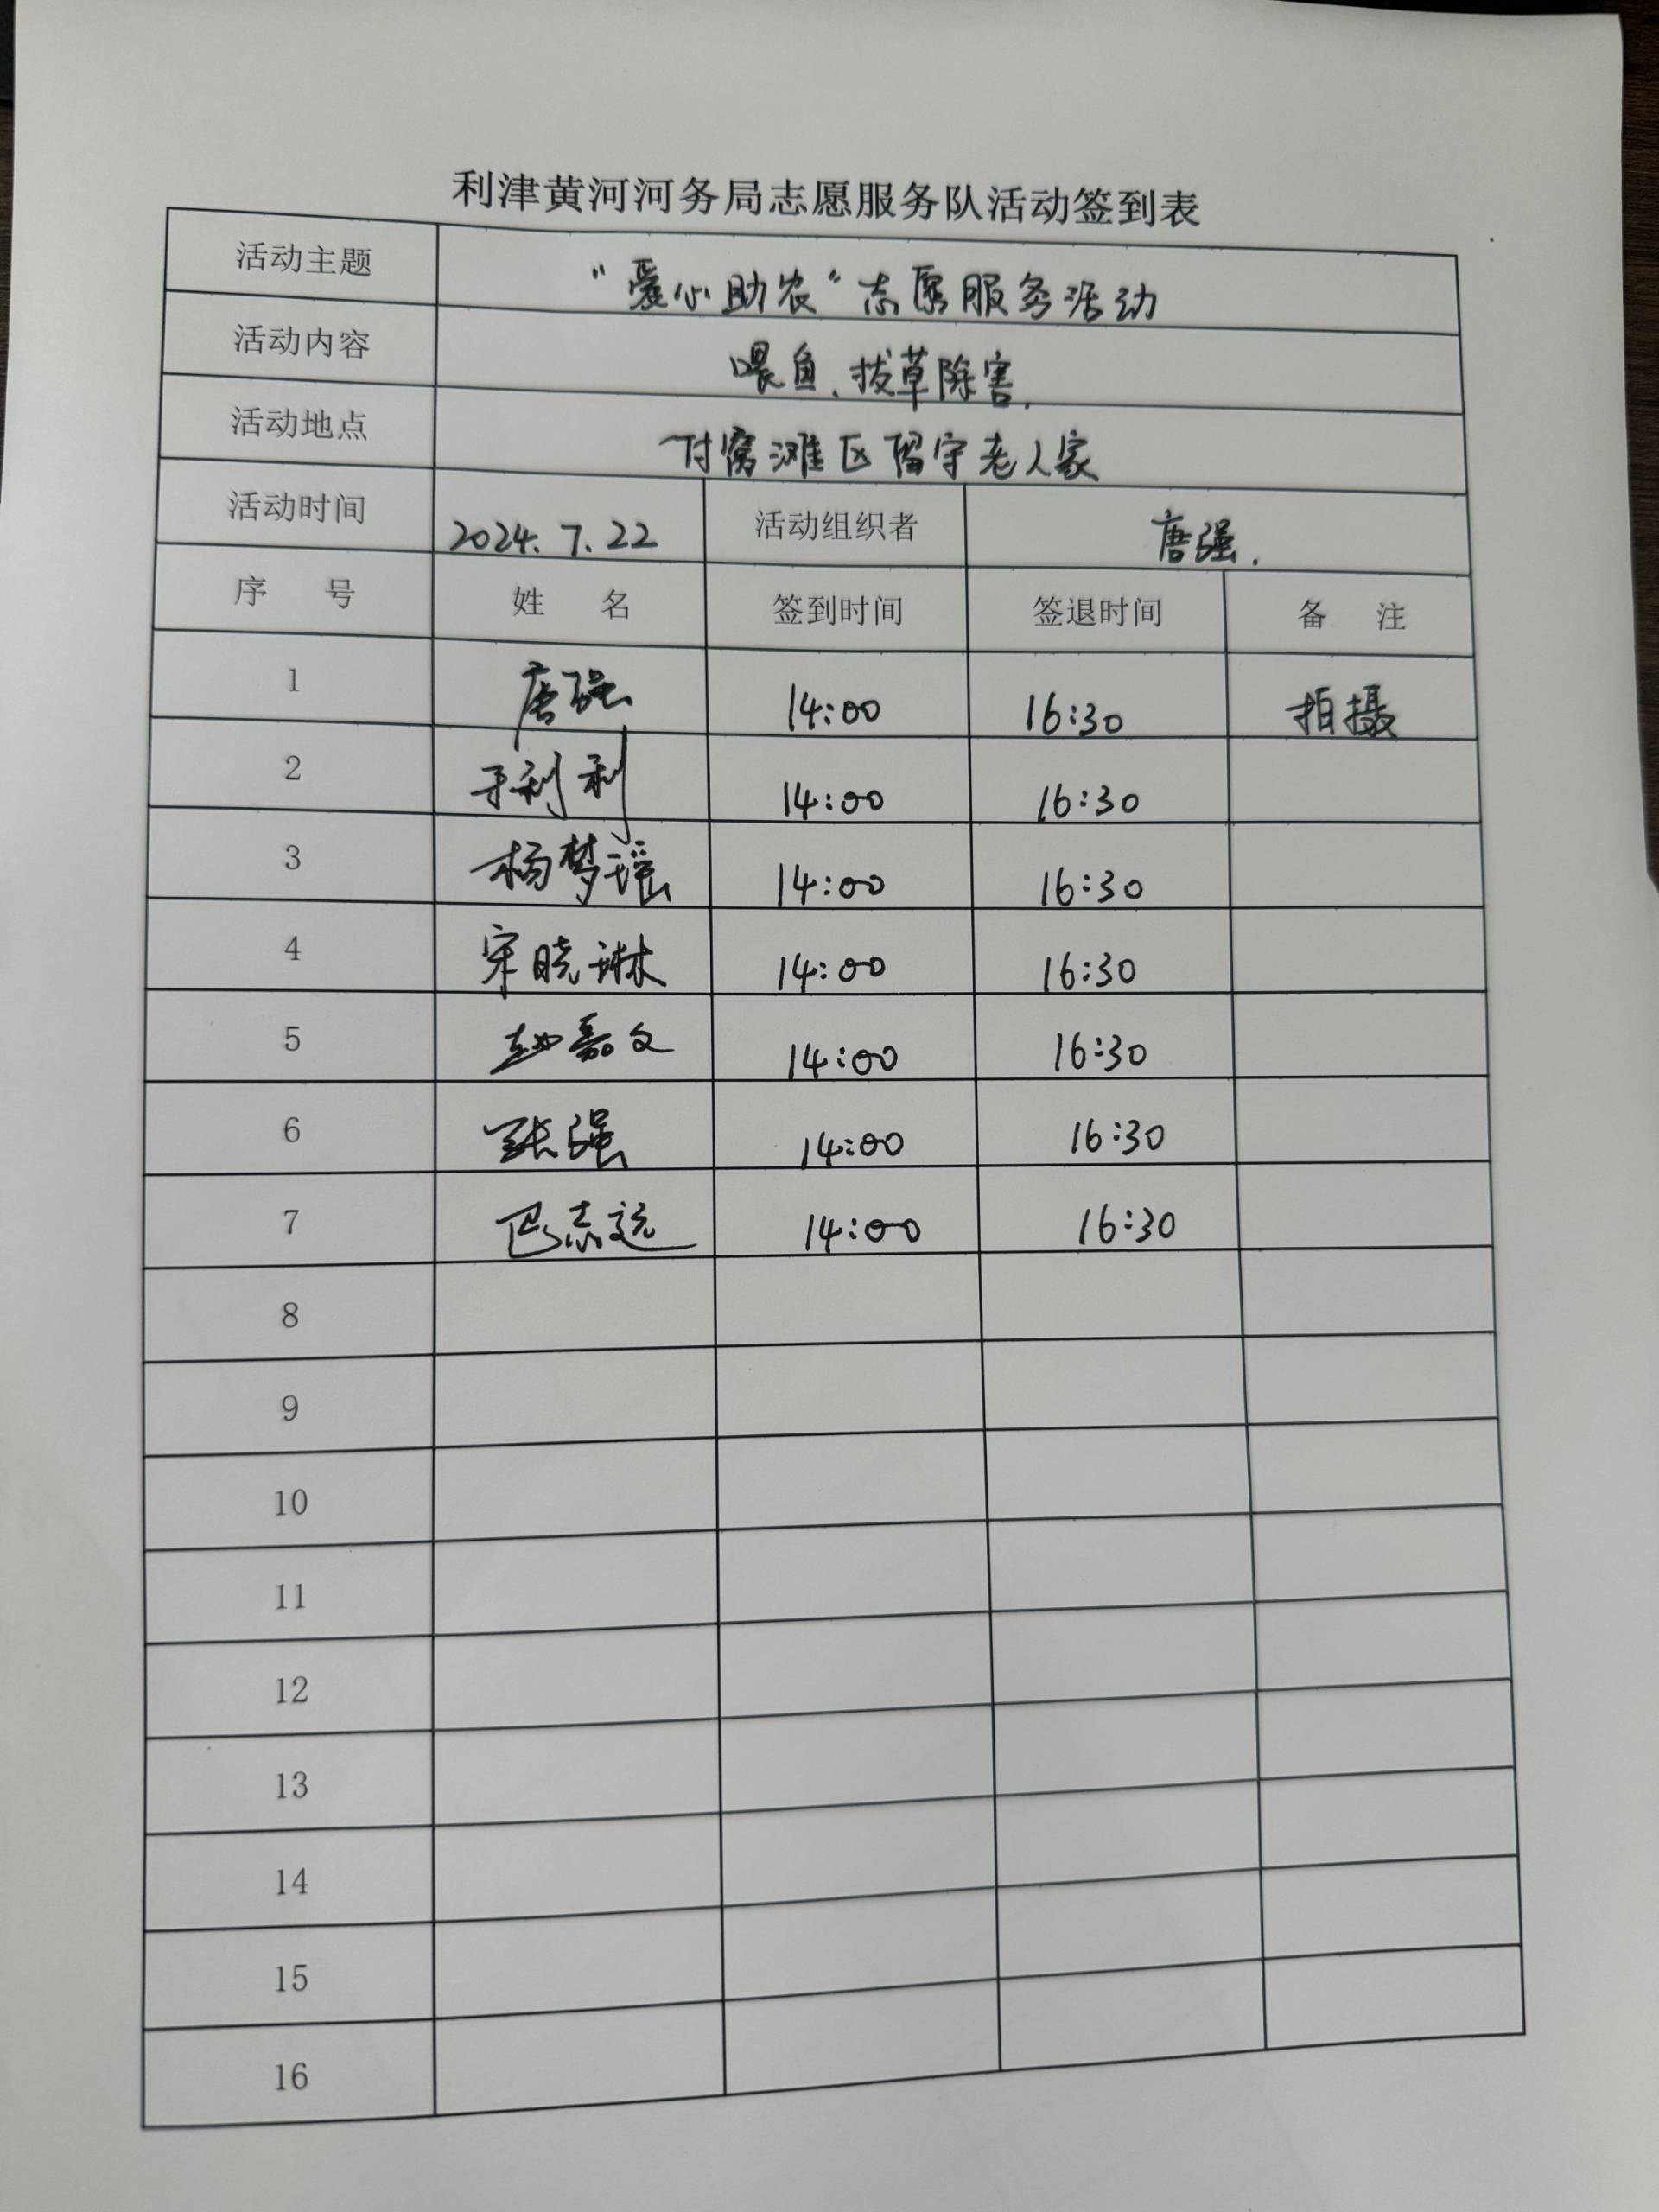 利津黄河河务局志愿服务队活动签到表
活动主题 “爱心助农”志愿服务活动
活动内容 喂鱼、拔草除害.
活动地点 付窝滩区留守老人家
活动时间 2024.7.22 活动组织者 唐强.
序 号 姓 名 签到时间 签退时间 备 注
1 唐强 14:00 16:30 拍摄
2 于利利 14:00 16:30
3 杨梦瑶 14:00 16:30
4 宋晓琳 14:00 16:30
5 赵嘉文 14:00 16:30
6 张强 14:00 16:30
7 巴志远 14:00 16:30
8
9
10
11
12
13
14
15
16